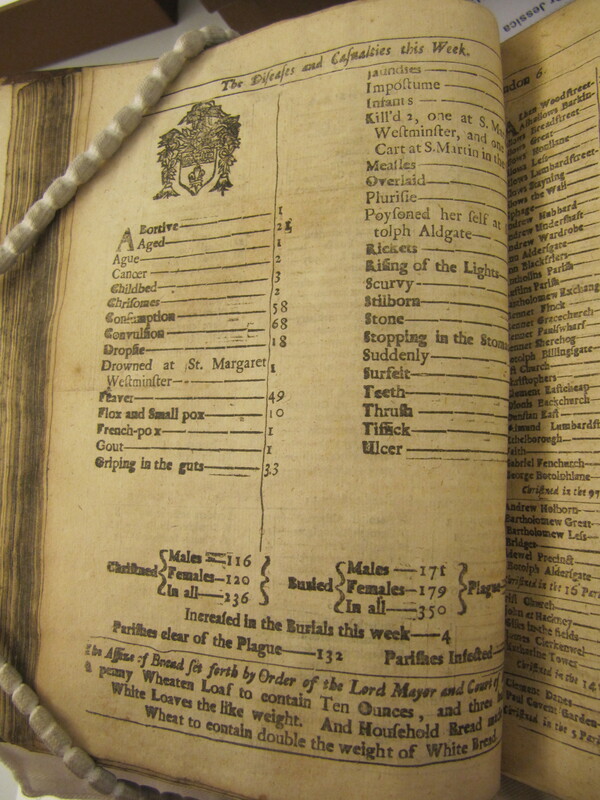 Jessica
The Diseases and Casualties this Week.
ABortive
1
Aged
2
Ague
1
Cancer
2
Childbed
3
Chrisomes
2
Consumption
58
Convulsion
68
Dropsie
18
Drowned at St. Margaret
Westminster
1
Feaver
49
Flox and Small pox
10
French-pox
1
Gout
1
Griping in the guts
33
Jaundies
Impostume
Infants
Kill'd 2, one at S. M
Westminster, and one
Cart at S. Martin in the
Measles
Overlaid
Plurisie
Poysoned her self at
tolph Aldgate
Rickets
Rising of the Lights
Scurvy
Stilborn
Stone
Stopping in the Stom
Suddenly
Surfeit
Teeth
Thrush
Tissick
Ulcer
Christned
Males 116
Females 120
In all 236
Buried
Males 171
Females 179
In all 350
Plague
Increased in the Burials this week 4
Parishes clear of the Plague 132 Parishes Infected
The Assize of Bread set forth by Order of the Lord Mayor and Court of
a penny Wheaten Loaf to contain Ten Ounces, and three
White Loaves the like weight. And Houshold Bread
Wheat to contain double the weight of White Bread.
ndon 6
Woodstreet
Breadstreet
Great
Lumbardstreet
the Wall
Hubbard
Undershaft
drew Wardrobe
Aldersgate
Blackfriers
Parish
Exchang
Finck
Gracechurch
Paulswharf
Sherehog
Billingsgate
Church
Christophers
Clement Eastcheap
Backchurch
Dunstan East
Edmund Lumbardst
Ethelborough
Faith
Gabriel Fenchurch
George Botolphlane
Christned in the 97
Andrew Holborn
Bartholomew Great
Bartholomew Less
Bridget
Bridewel Precinct
Botolph Aldersgate
Christned in the 16 Par
Christ Church
John at Hackney
Giles in the fields
James Clerkenwel
Katharine Tower
Christned in the
Clement Danes
Paul Covent Garden
Christned in the 5 Pari